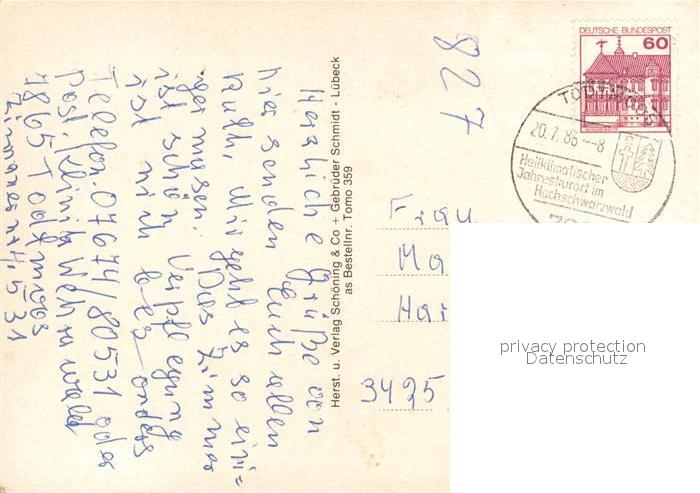 Herzliche Grüße von
hier senden Euch allen
Ruth, Mir geht es so eini=
germasen. Das Zimmer
ist schön Verpflegung
ist nich bes_onders
Telefon. 07674/80531 oder
Post. Klinik Wehrawald
7865 Todtmoos
Zimmer
531
Herst. u. Verlag Schöning & Co + Gebrüder Schmidt - Lübeck
as Bestellnr. Tomo 359
827
DEUTSCHE BUNDESPOST
60
TODTMOOS
20.7.86--8
Heilklimatischer
Jahreskurort im
Hochschwarzwald
Frau
Ma
Har
3495
privacy protection
Datenschutz